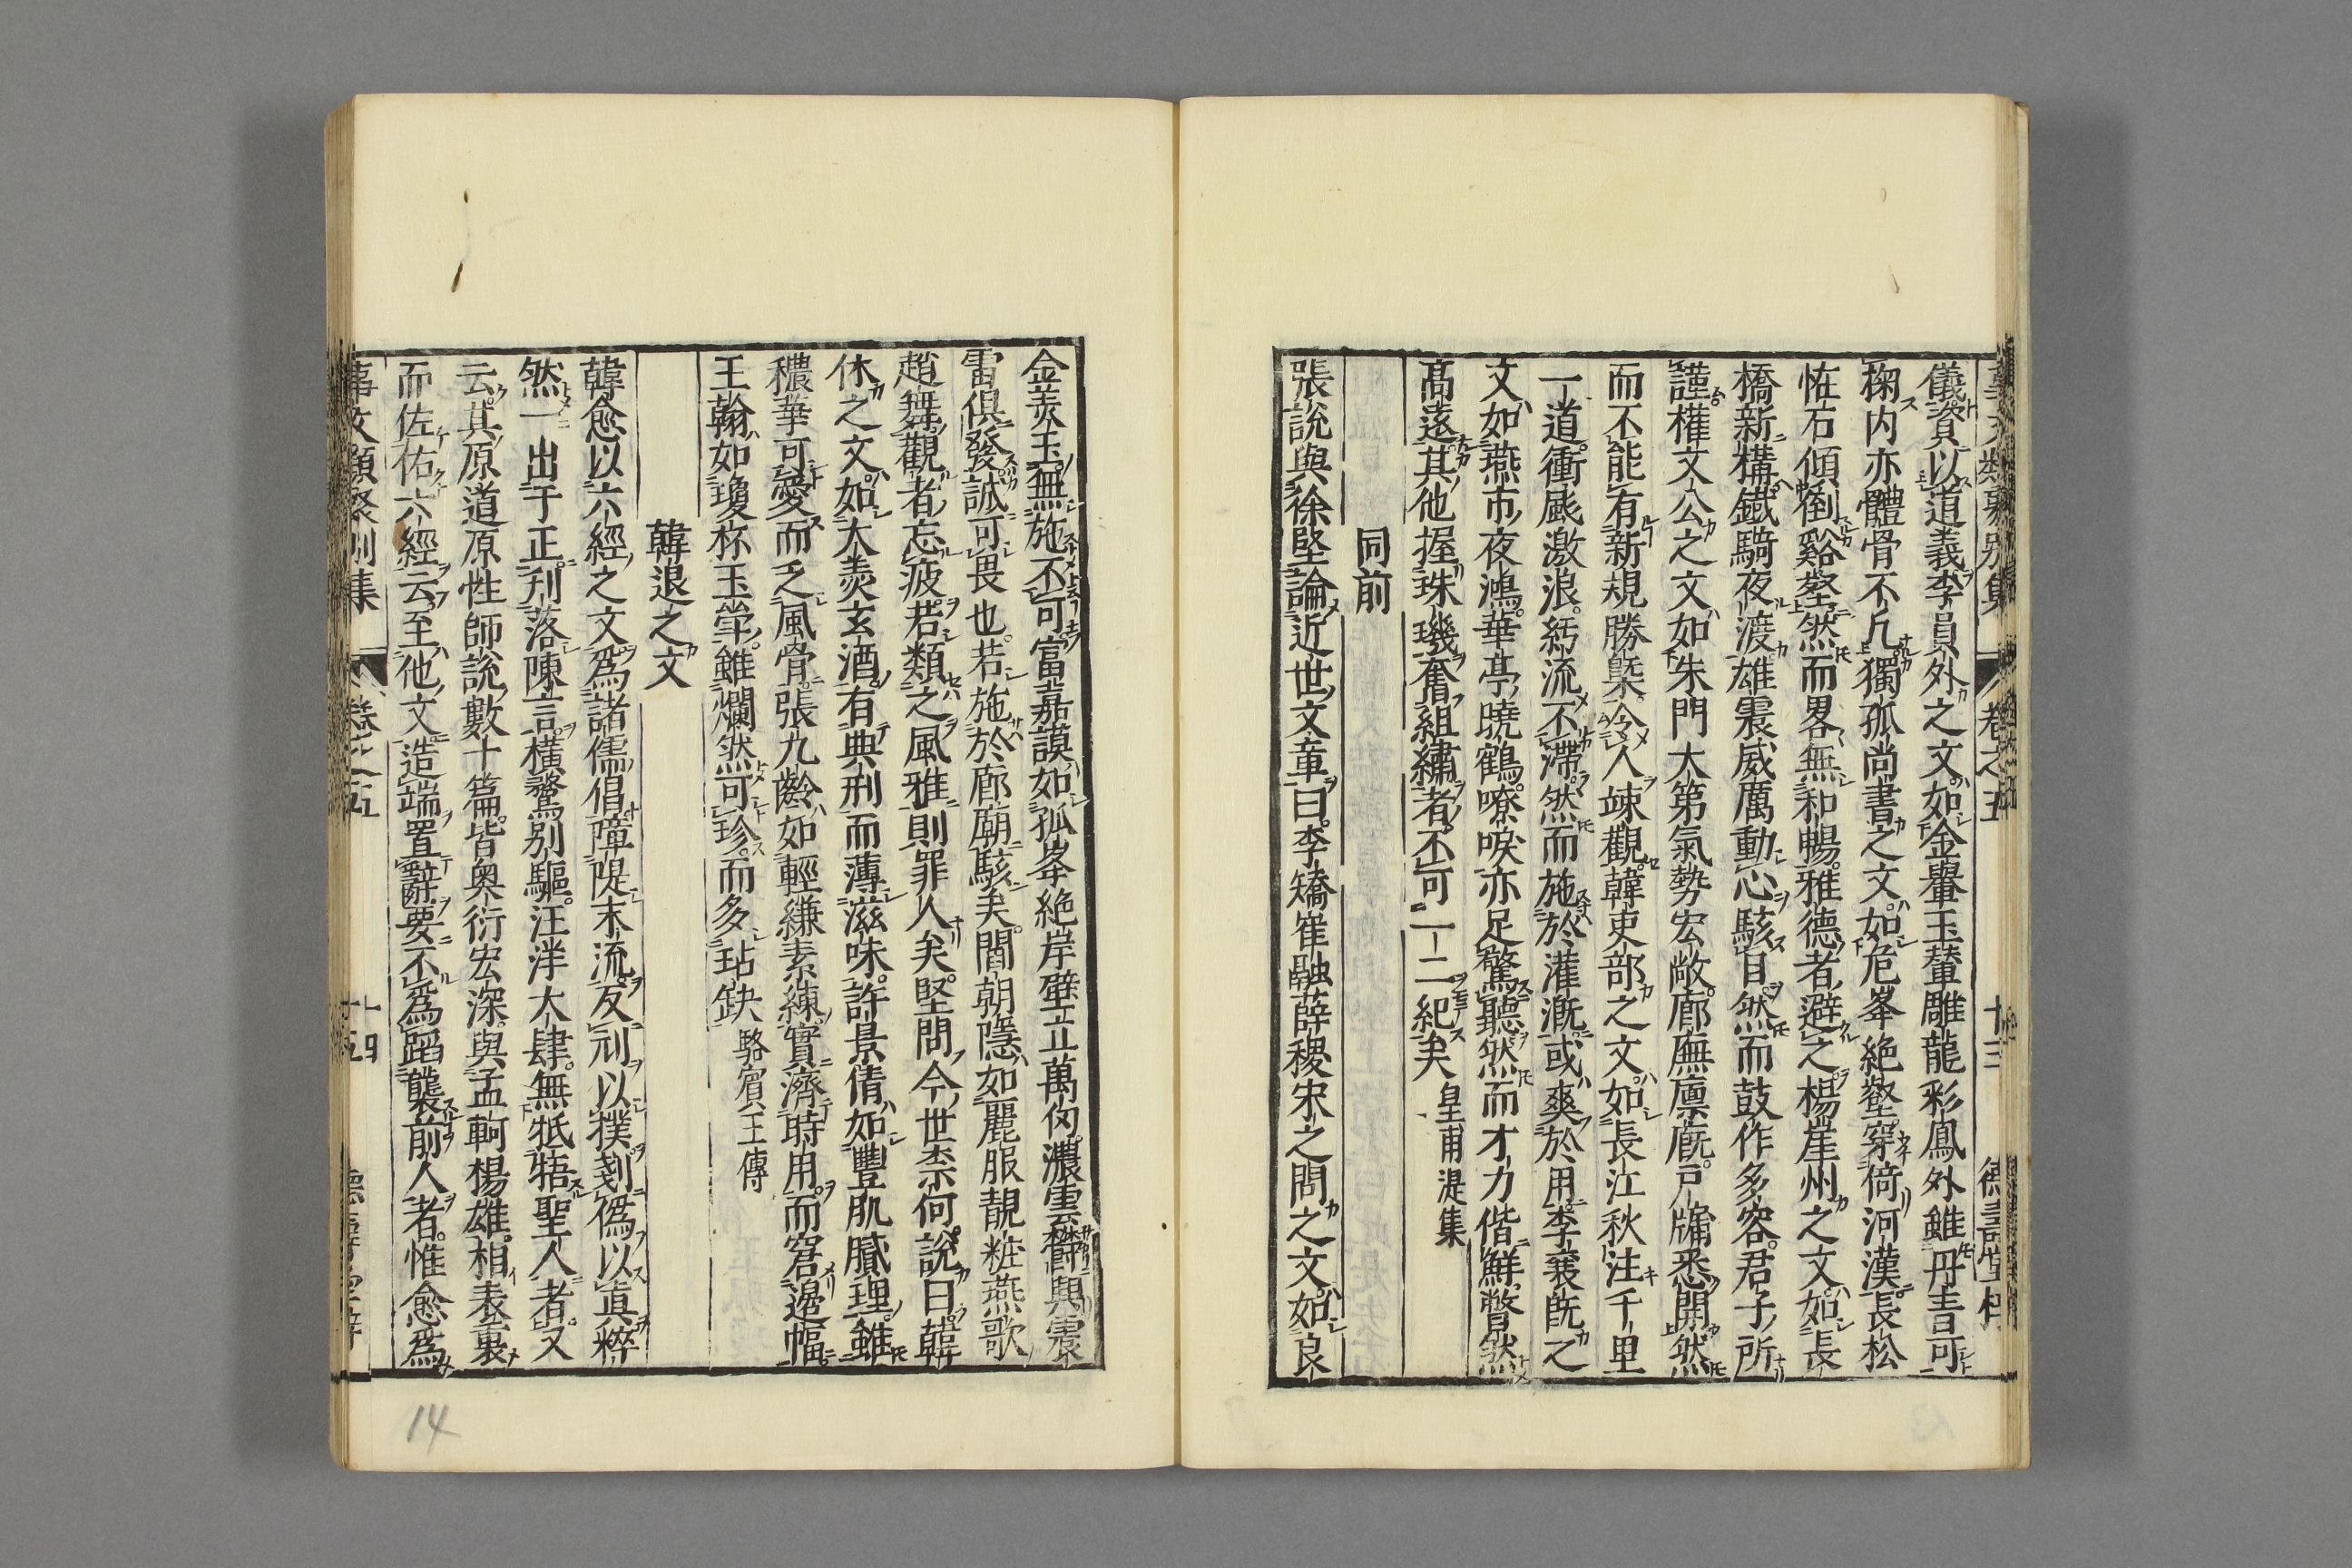 事文類聚別集 卷之五 十三 德壽堂梓
儀資以道義李員外之文如金轝玉輦雕龍彩鳳外雖丹青可
掬内亦體骨不凡獨孤尚書之文如危峯絶壑穿倚河漢長松
怪石傾倒谿壑然而畧無和暢雅德者避之楊崖州之文如長
橋新構鐵騎夜渡雄震威厲動心駭目然而鼓作多容君子所
謹權文公之文如朱門大第氣勢宏敞廊廡廪厩戸牖悉開然
而不能有新規勝槩令人竦觀韓吏部之文如長江秋注千里
一道衝飈激浪紆流不滯然而施於灌漑或爽於用李襄旣之
文如燕市夜鴻華亭曉鶴嘹唳亦足驚聽然而才力偕鮮瞥然
髙遠其他握珠璣奮組繡者不可一二紀矣 皇甫湜集
同前
張説與徐堅論近世文章曰李嬌崔融薛稷宋之問之文如良
金羙玉無施不可富嘉謨如孤峯絶岸壁立萬仭濃雲鬱興震
雷俱發誠可畏也若施於廊廟駭矣閻朝隱如麗服靚粧燕歌
趙舞觀者忘疲若類之風雅則罪人矣堅問今世柰何説曰韓
休之文如大羙玄酒有典刑而薄滋味許景倩如豐肌膩理雖
穠華可愛而乏風骨張九齡如輕縑素練實濟時用而窘邊幅
王翰如瓊杯玉斝雖爛然可珍而多玷缺 駱賓王傳
韓退之文
韓愈以六經之文爲諸儒倡障隄末流反刓以撲剗僞以真粹
然一出于正刋落陳言横騖别驅汪洋大肆無牴牾聖人者又
云其原道原性師説數十篇皆奥衍宏深與孟軻楊雄相表裏
而佐佑六經云至他文造端置辭要不爲蹈襲前人者惟愈爲
事文類聚别集 卷之五 十四 德壽堂梓
14